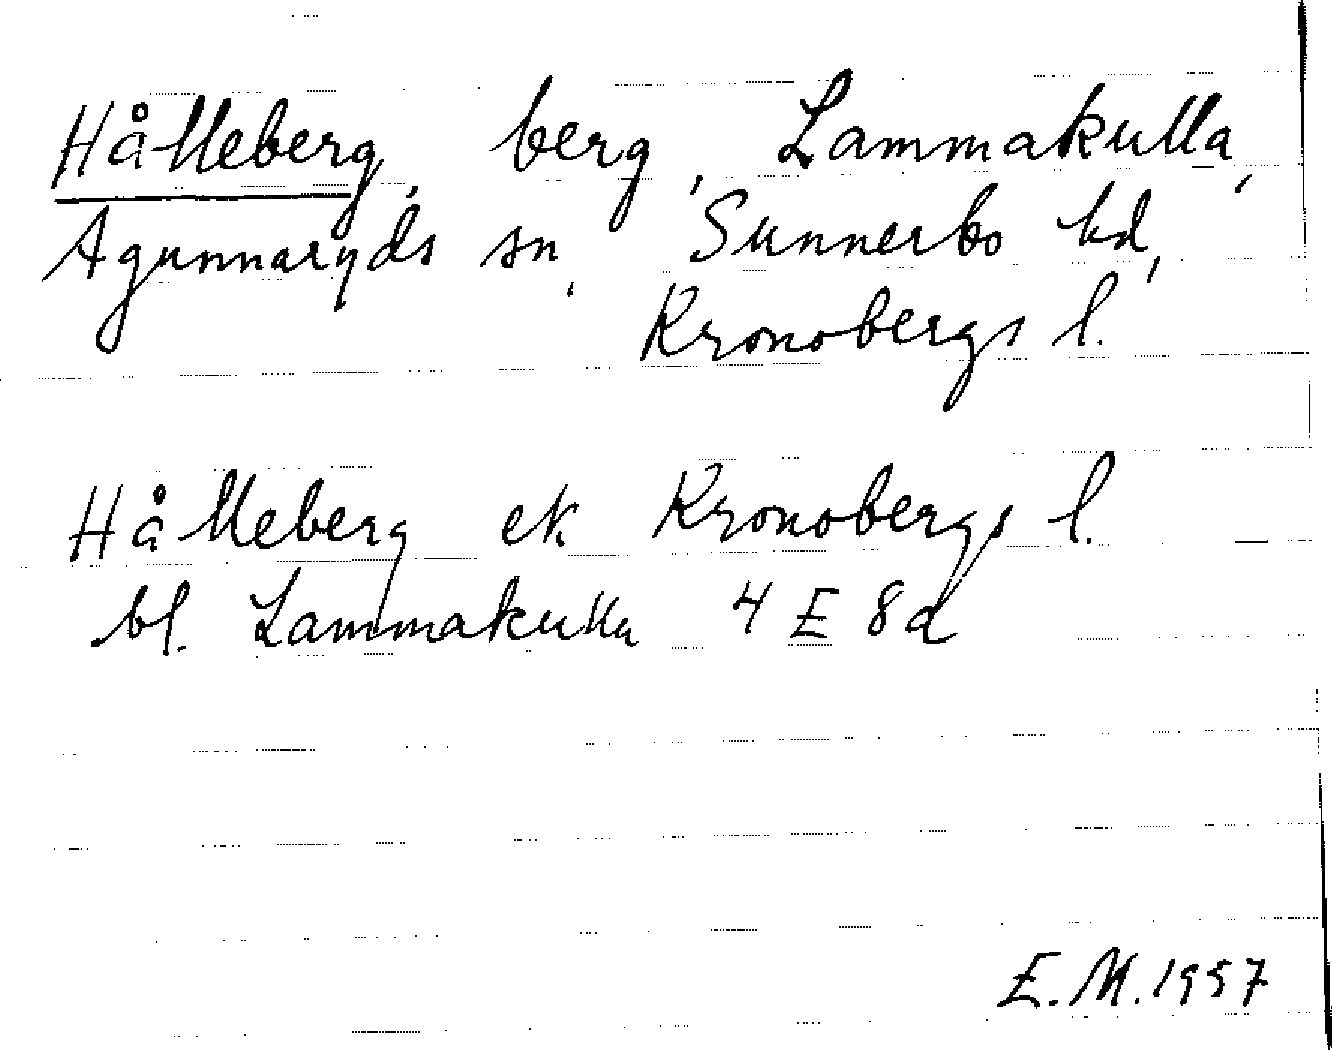 Hålleberg, berg, Lammakulla,
Agunnaryds sn, Sunnerbo hd,
Kronobergs l.
Hålleberg ek Kronobergs l.
bl. Lammakulla 4 E 8d
E.M. 1957